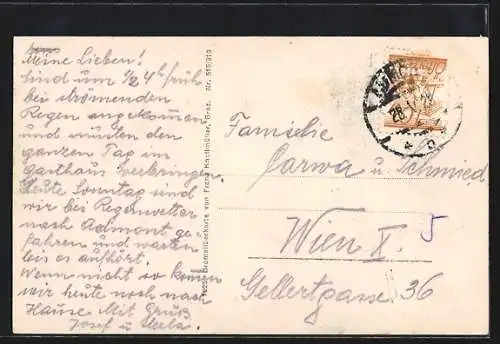 Meine Lieben!
Sind um 1/2 4h früh
bei strömenden
Regen angekommen
und mußten den
ganzen Tag im
Gasthaus verbringen.
Heute Sonntag sind
wir bei Regenwetter
nach Admont ge=
fahren und warten
bis es aufhört.
Wenn nicht so kommen
wir heute noch nach
Hause. Mit Gruß
Josef u
Bromsilberkarte von Franz Knollmüller, Graz. Nr. 515/919
Familie
u. Schmied
Wien X. 5
Gellertgasse 36